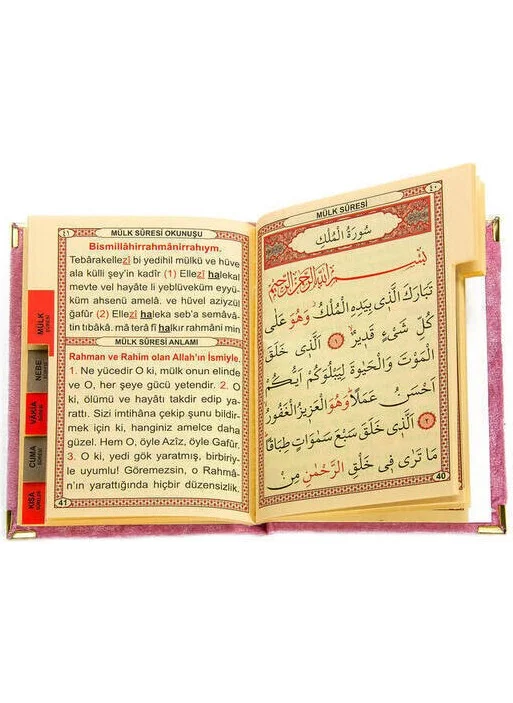 41
MÜLK SÛRESİ OKUNUŞU
Bismillâhirrahmânirrahıym.
Tebârakellezî bi yedihil mülkü ve hüve
ala külli şey'in kadîr (1) Ellezî halekal
mevte vel hayâte li yeblüveküm eyyü-
küm ahsenü amelâ. ve hüvel aziyzül
ğafûr (2) Ellezî haleka seb'a semâvâ-
tin tıbâkâ. mâ terâ fî halkır rahmâni min
MÜLK SÛRESİ ANLAMI
Rahman ve Rahim olan Allah'ın İsmiyle.
1. Ne yücedir O ki, mülk onun elinde
ve O, her şeye gücü yetendir. 2. O
ki, ölümü ve hayâtı takdir edip ya-
rattı. Sizi imtihâna çekip şunu bildir-
mek için ki, hanginiz amelce daha
güzel. Hem O, öyle Azîz, öyle Gafûr.
3. O ki, yedi gök yaratmış, birbiriy-
le uyumlu! Göremezsin, o Rahmâ-
n'ın yarattığında hiçbir düzensizlik.
41
MÜLK
SÛRESİ
NEBE
SÛRESİ
VAKIA
SÛRESİ
CUMA
SÛRESİ
KISA
SÛRELER
MÜLK SÛRESİ
٤٠
سُورَةُ الْمُلْكِ
بِسْمِ اللّٰهِ الرَّحْمٰنِ الرَّحِيمِ
تَبَارَكَ الَّذِى بِيَدِهِ الْمُلْكُ وَهُوَ عَلٰى
كُلِّ شَىْءٍ قَدِيرٌ ١ اَلَّذِى خَلَقَ
الْمَوْتَ وَالْحَيٰوةَ لِيَبْلُوَكُمْ اَيُّكُمْ
اَحْسَنُ عَمَلًا وَهُوَ الْعَزِيزُ الْغَفُورُ
٢ اَلَّذِى خَلَقَ سَبْعَ سَمٰوَاتٍ طِبَاقًا
مَا تَرٰى فِى خَلْقِ الرَّحْمٰنِ مِنْ
40